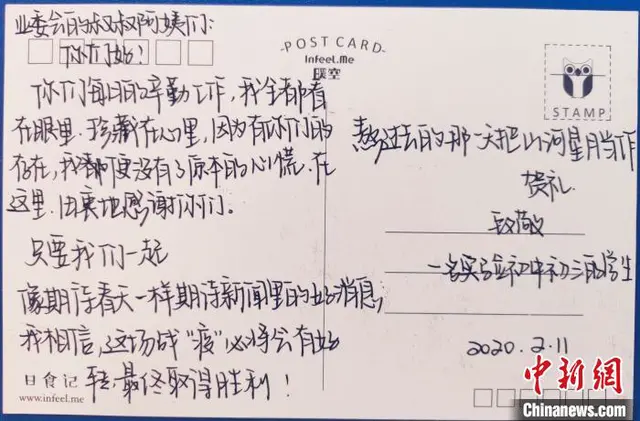 业委会的叔叔阿姨们:
你们好!
你们每日的辛勤工作,我全都看
在眼里.珍藏在心里,因为有你们的
存在,我都没有了原本的心慌.在
这里.由衷地感谢你们。
只要我们一起
像期待春天一样期待新闻里的好消息,
我相信,这场战“疫”必将会有好
转最终取得胜利!
日食记
www.infeel.me
POST CARD
Infeel.Me
暖空
STAMP
熬过去的那一天把山河星月当作
贺礼.
致敬
一名实验初中初三的学生
2020.2.11
中新网
Chinanews.com